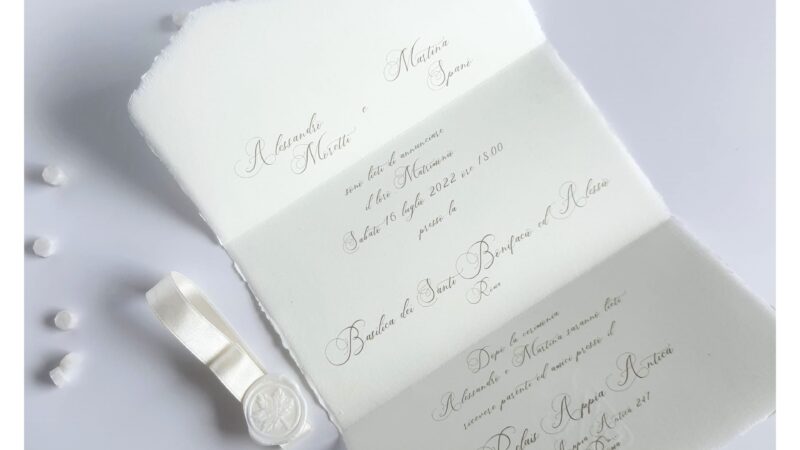 Alessandro
Moretti
e
Martina
Spanò
sono lieti di annunciare
il loro Matrimonio
Sabato 16 luglio 2022 ore 18.00
presso la
Basilica dei Santi Bonifacio ed Alessio
Roma
Dopo la cerimonia
Alessandro e Martina saranno lieti
ricevere parenti ed amici presso il
Relais Appia Antica
Appia Antica 247
Roma